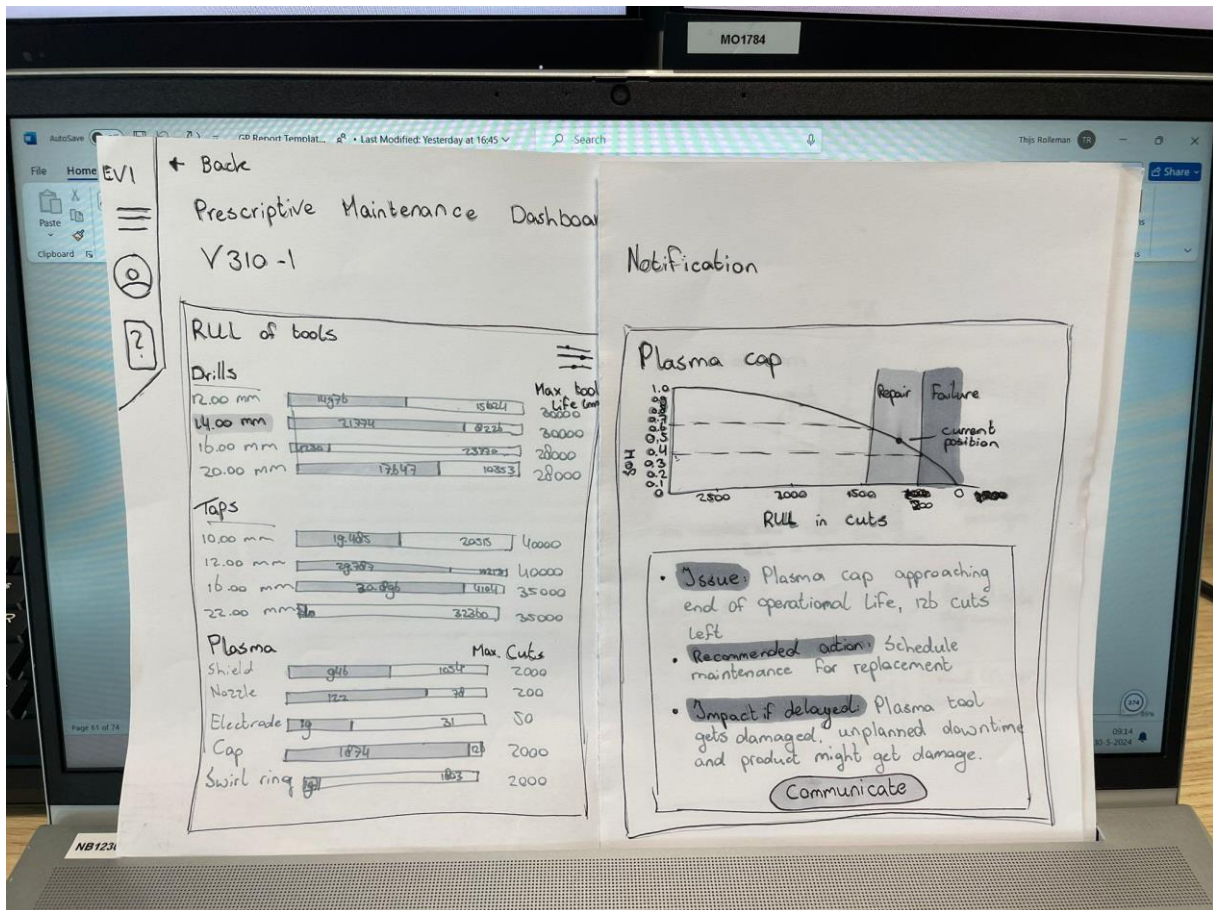 MO1784
AutoSave
GP Report Templat... • Last Modified: Yesterday at 16:45
Search
Thijs Rolleman
TR
File
Home
Share
Paste
Clipboard
Page 61 of 74
09:14
30-5-2024
NB1230
EVI
← Back
Prescriptive Maintenance Dashboar
V310-1
?
RUL of tools
Drills
Max. tool
Life (mm
12.00 mm 14376 15624 30000
14.00 mm 21774 8226 30000
16.00 mm 28000
20.00 mm 17647 10353 28000
Taps
10.00 mm 19.485 20515 40000
12.00 mm 29.787 10213 40000
16.00 mm 30.896 4104 35000
22.00 mm 32360 35000
Plasma
Max. Cuts
Shield 946 1054 2000
Nozzle 122 78 200
Electrode 19 31 50
Cap 1874 12 2000
Swirl ring 1803 2000
Notification
Plasma cap
Repair
Failure
current
position
SOH
1.0
0.5
0.4
0.3
0.2
0.1
0
2500 2000 1500 0
RUL in cuts
• Issue: Plasma cap approaching
end of operational life, 126 cuts
left
• Recommended action: Schedule
maintenance for replacement
• Impact if delayed: Plasma tool
gets damaged, unplanned downtime
and product might get damage.
Communicate